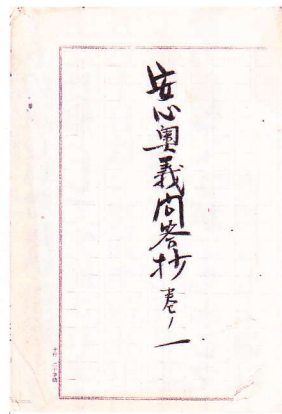 安心奥義問答抄巻ノ一